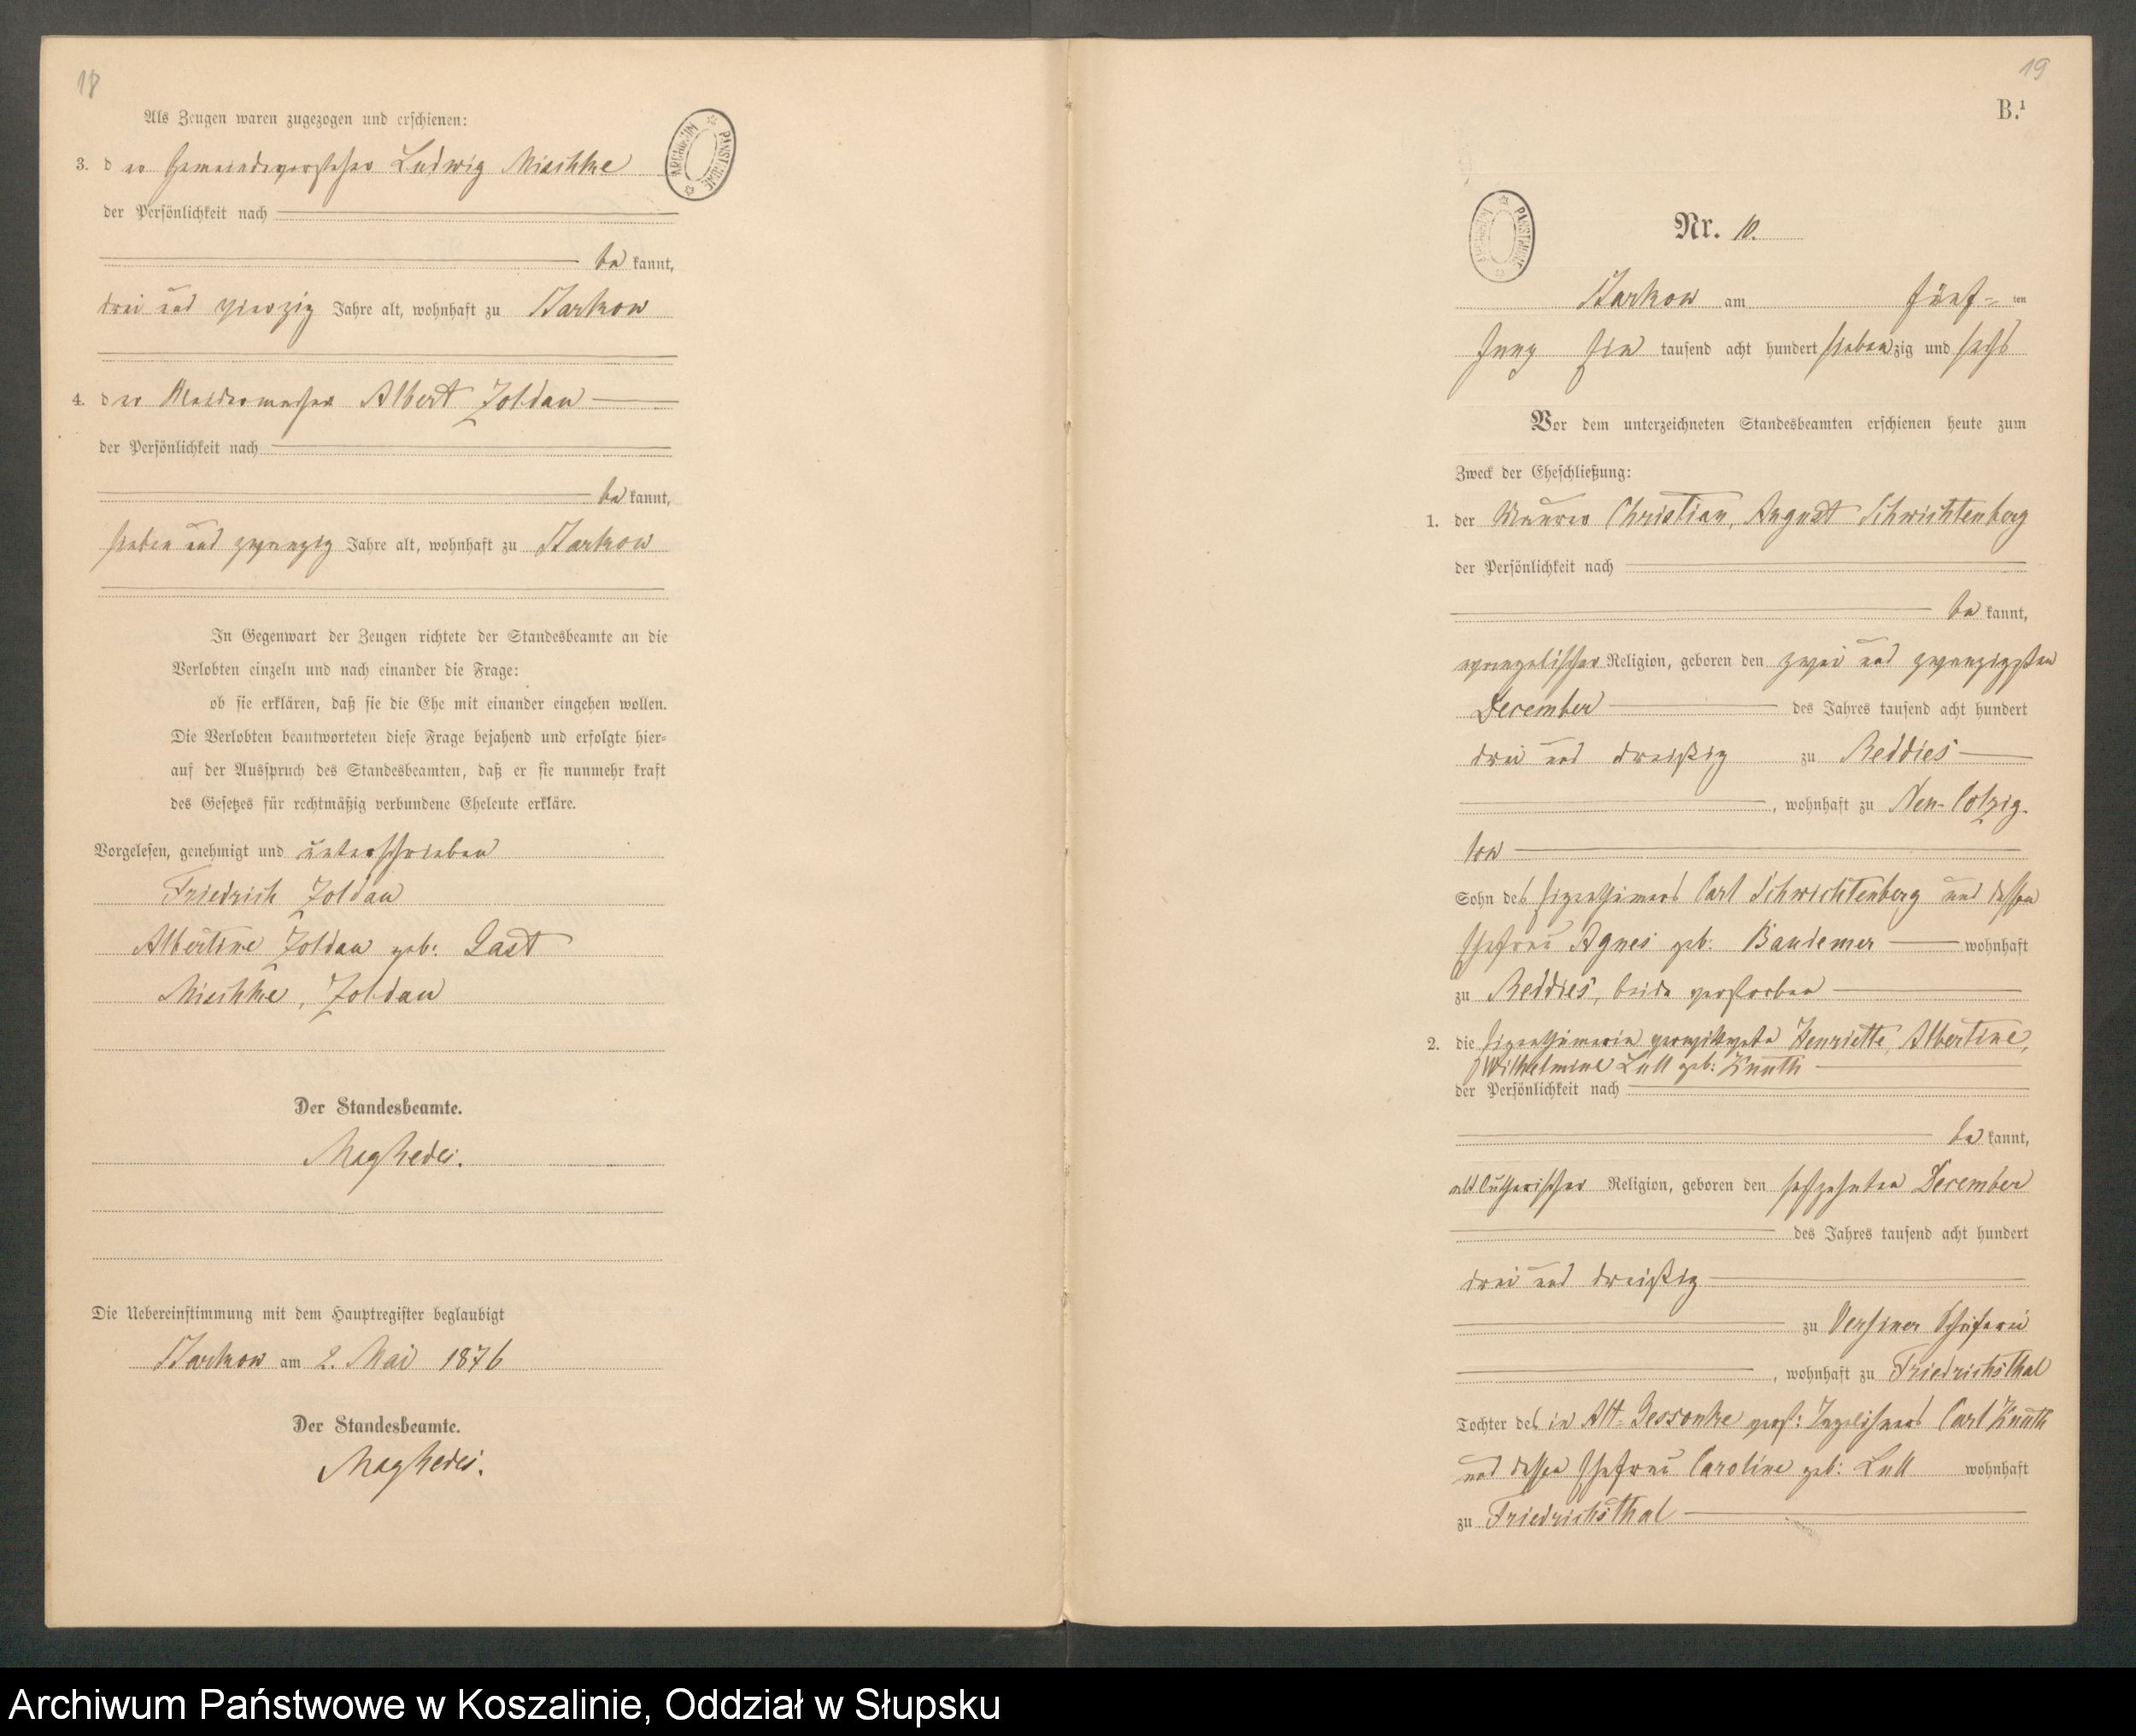 18
Als Zeugen waren zugezogen und erschienen:
3. der Gemeindevorsteher Ludwig Mischke
der Persönlichkeit nach
bekannt,
drei und vierzig Jahre alt, wohnhaft zu Barkow
4. der Albert Zoldan
der Persönlichkeit nach
bekannt,
sieben und zwanzig Jahre alt, wohnhaft zu Barkow
In Gegenwart der Zeugen richtete der Standesbeamte an die
Verlobten einzeln und nach einander die Frage:
ob sie erklären, daß sie die Ehe mit einander eingehen wollen.
Die Verlobten beantworteten diese Frage bejahend und erfolgte hier-
auf der Ausspruch des Standesbeamten, daß er sie nunmehr kraft
des Gesetzes für rechtmäßig verbundene Eheleute erkläre.
Vorgelesen, genehmigt und unterschrieben
Friedrich Zoldan
Albertine Zoldan geb: Last
Mischke, Zoldan
Der Standesbeamte.
Die Uebereinstimmung mit dem Hauptregister beglaubigt
Barkow am 2. Mai 1876
Der Standesbeamte.
ARCHIWUM PAŃSTWOWE
19
B.¹
ARCHIWUM PAŃSTWOWE
Nr. 10.
Barkow am fünf-ten
Juny Ein tausend acht hundert siebenzig und sechs
Vor dem unterzeichneten Standesbeamten erschienen heute zum
Zweck der Eheschließung:
1. der Maurer Christian, August Schwichtenberg
der Persönlichkeit nach
bekannt,
evangelischer Religion, geboren den zwei und zwanzigsten
December des Jahres tausend acht hundert
drei und dreißig zu Reddies
, wohnhaft zu Neu-Colzig-
low
Sohn des Eigenthümers Carl Schwichtenberg und dessen
Ehefrau Agnes geb: Bandemer wohnhaft
zu Reddies, beide verstorben
2. die Eigenthümerin verwittwete Henriette, Albertine,
Wilhelmine Lull geb: Knuth
der Persönlichkeit nach
bekannt,
altlutherischer Religion, geboren den sechzehnten December
des Jahres tausend acht hundert
drei und dreißig
zu Versiner Schäferei
, wohnhaft zu Friedrichsthal
Tochter des in Alt-Gessonke verst: Carl Knuth
und dessen Ehefrau Caroline geb: Lull wohnhaft
zu Friedrichsthal
Archiwum Państwowe w Koszalinie, Oddział w Słupsku